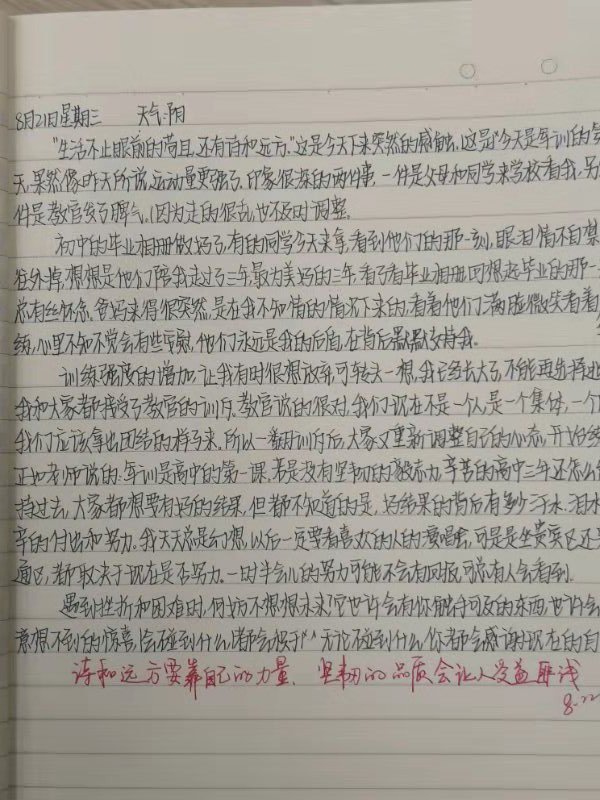 8月21日星期三 天气:阴
"生活不止眼前的苟且,还有诗和远方."这是今天下来突然的感触,这是"今天是军训的第
天,果然像昨天所说,运动量更强了,印象很深的两件事,一件是父母和同学来学校看我,另
件是教官发了脾气.(因为走的很乱,也不及时调整.
初中的毕业相册做好了,有的同学今天来拿,看到他们的那一刻,眼泪情不自禁
往外掉,想想是他们陪我走过了三年,最为美好的三年,看了看毕业相册,回想起毕业的那一
总有丝怀念.爸妈来得很突然,是在我不知情的情况下来的,看着他们满脸微笑看着
练,心里不知不觉会有些安慰,他们永远是我的后盾,在背后默默支持我.
训练强度的增加,让我有时很想放弃,可转头一想,我已经长大了,不能再选择
我和大家都接受了教官的训斥.教官说的很对,我们现在不是一个人,是一个集体,一个
我们应该拿出团结的样子来.所以一番训斥后,大家又重新调整自己的心态,开始
正如老师说的:军训是高中的第一课,若是没有坚韧的毅志力,辛苦的高中三年还怎么
持过去,大家都想要有好的结果,但都不知道的是,好结果的背后有多少汗水,泪水
辛的付出和努力.我天天总是幻想,以后一定要看喜欢的人的演唱会,可是是坐贵宾区还是
通区,都取决于现在是否努力.一时半会儿的努力可能不会有回报,可总有人会看到.
遇到挫折和困难时,何妨不想想未来?它也许会有你触手可及的东西,也许会
意想不到的惊喜,会碰到什么,都会极于^^无论碰到什么,你都会感谢现在的自
诗和远方要靠自己的力量、坚韧的品质会让人受益匪浅
8.22